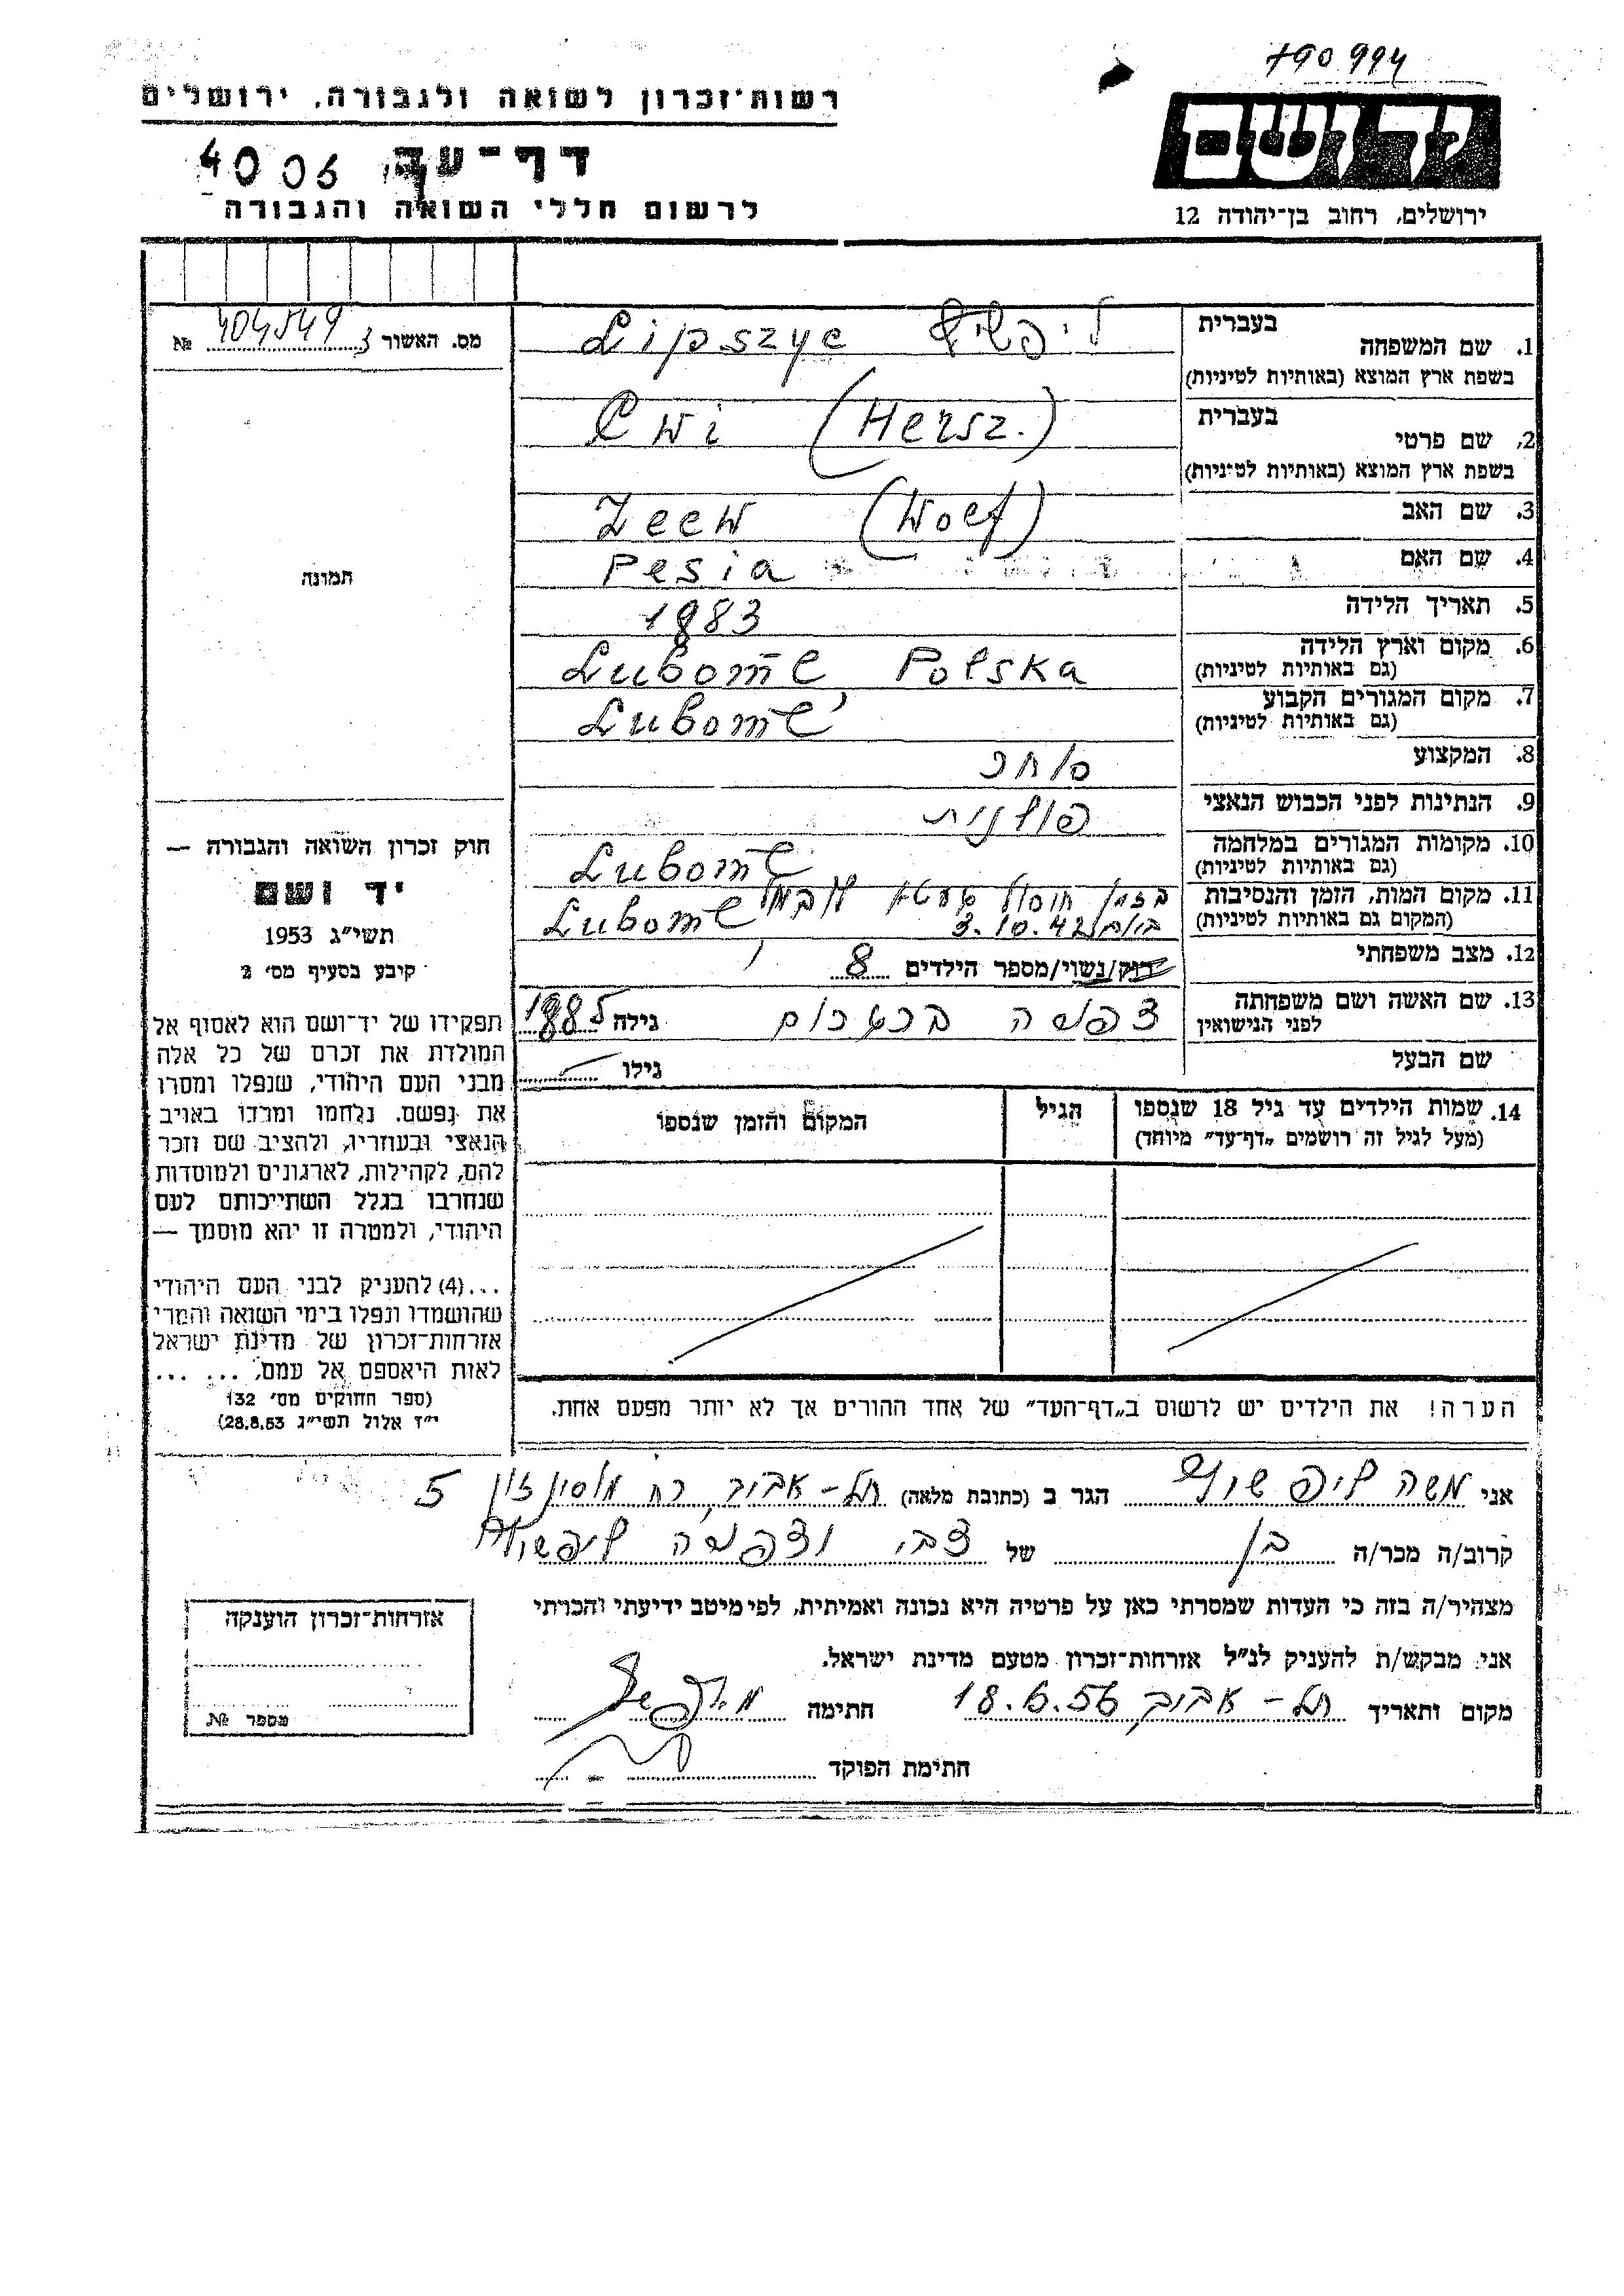 790994
רשות־זכרון לשואה ולגבורה, ירושלים
יד ושם
דף־עד
4006
לרשום חללי השואה והגבורה
ירושלים, רחוב בן־יהודה 12
מס. האשור 404549 №
תמונה
חוק זכרון השואה והגבורה —
יד ושם
תשי״ג 1953
קיבע בסעיף מס׳ 2
תפקידו של יד־ושם הוא לאסוף אל
המולדת את זכרם של כל אלה
מבני העם היהודי, שנפלו ומסרו
את נפשם, נלחמו ומרדו באויב
הנאצי ובעוזריו, ולהציב שם וזכר
להם, לקהילות, לארגונים ולמוסדות
שנחרבו בגלל השתייכותם לעם
היהודי, ולמטרה זו יהא מוסמך —
...(4) להעניק לבני העם היהודי
שהושמדו ונפלו בימי השואה והמרי
אזרחות־זכרון של מדינת ישראל
לאות היאספם אל עמם, ... ...
(ספר החוקים מס׳ 132
י״ז אלול תשי״ג 28.8.53)
בעברית
1. שם המשפחה Lipszyc
בשפת ארץ המוצא (באותיות לטיניות)
בעברית
2. שם פרטי Cwi (Hersz.)
בשפת ארץ המוצא (באותיות לטיניות)
3. שם האב Zeew (Wolf)
4. שם האם Pesia
5. תאריך הלידה 1883
6. מקום וארץ הלידה Luboml Polska
(גם באותיות לטיניות)
7. מקום המגורים הקבוע Luboml
(גם באותיות לטיניות)
8. המקצוע סוחר
9. הנתינות לפני הכבוש הנאצי פולנית
10. מקומות המגורים במלחמה Luboml
(גם באותיות לטיניות)
11. מקום המות, הזמן והנסיבות בזמן חוסול
(המקום גם באותיות לטיניות) ביום 3.10.42 Luboml
12. מצב משפחתי רוק/נשוי/מספר הילדים 8
13. שם האשה ושם משפחתה גילה 1885
לפני הנישואין
שם הבעל גילו
14. שמות הילדים עד גיל 18 שנספו הגיל המקום והזמן שנספו
(מעל לגיל זה רושמים „דף־עד״ מיוחד)
הערה! את הילדים יש לרשום ב„דף־העד״ של אחד ההורים אך לא יותר מפעם אחת.
אני משה ליפשיץ הגר ב (כתובת מלאה) תל-אביב, רח 5
קרוב/ה מכר/ה בן של צבי ליפשיץ
מצהיר/ה בזה כי העדות שמסרתי כאן על פרטיה היא נכונה ואמיתית, לפי מיטב ידיעתי והכרתי
אני מבקש/ת להעניק לנ״ל אזרחות־זכרון מטעם מדינת ישראל.
מקום ותאריך תל-אביב 18.6.56 חתימה
חתימת הפוקד
אזרחות־זכרון הוענקה
מספר №